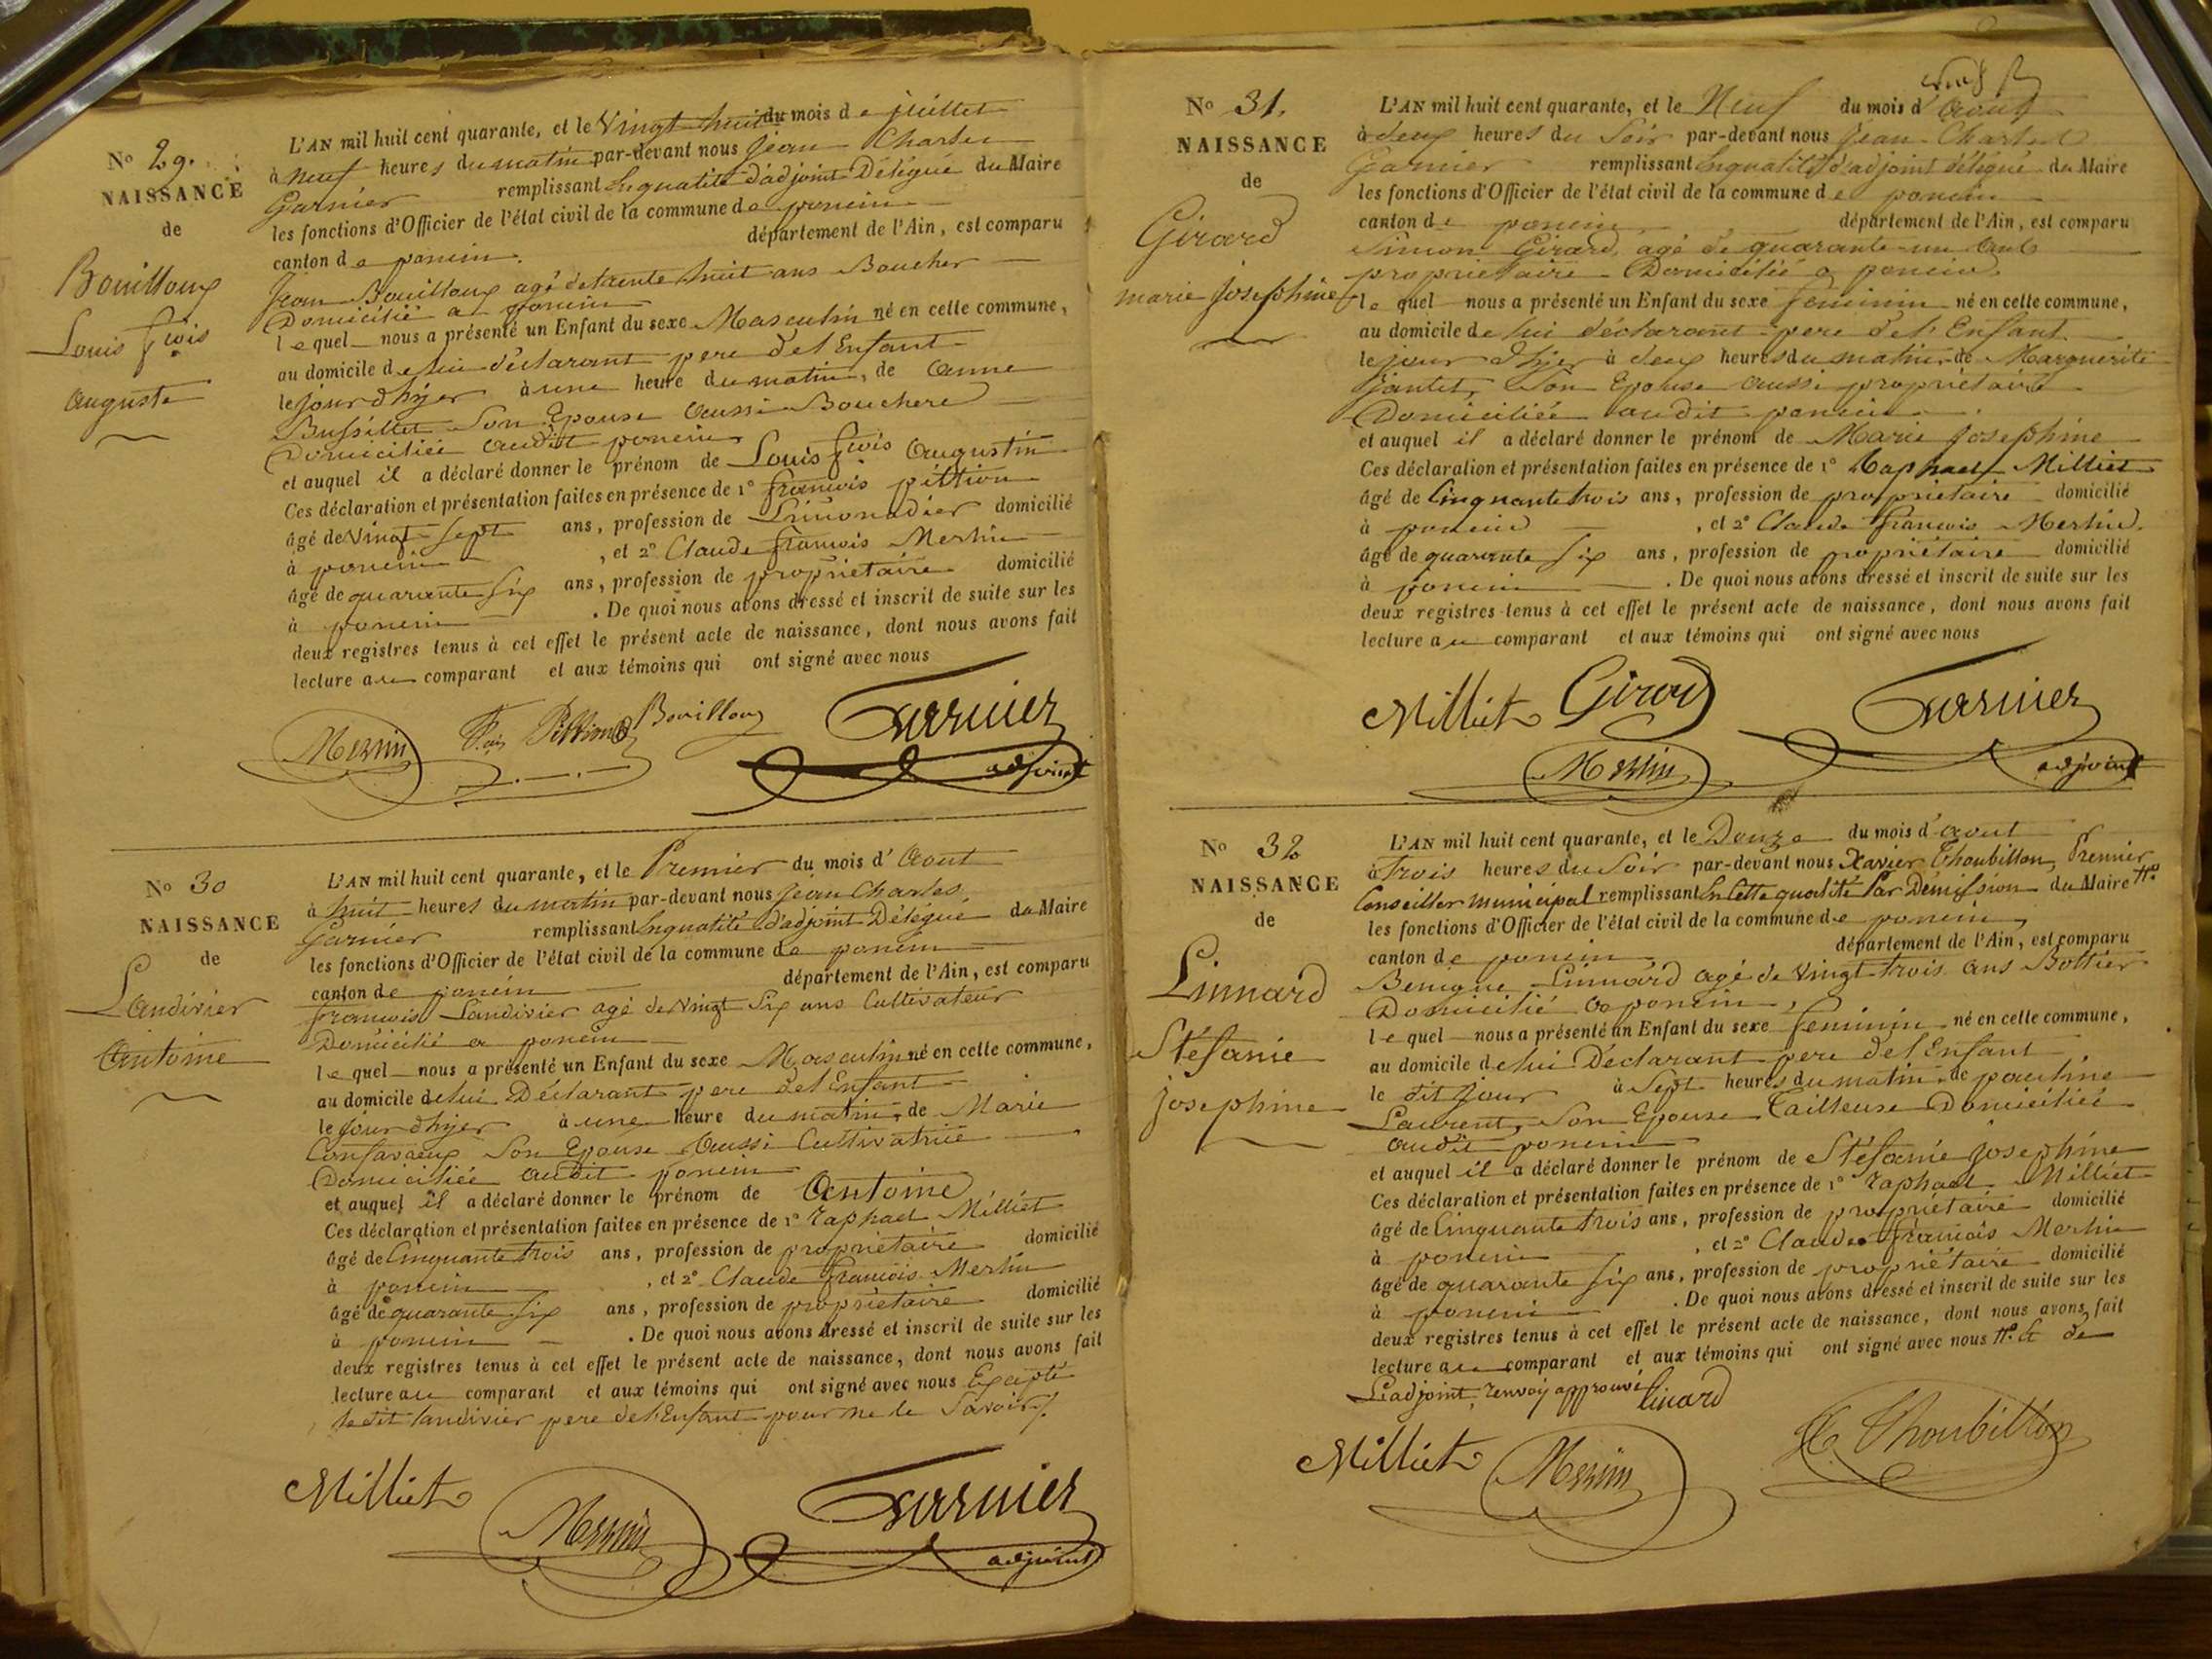 N° 29.
NAISSANCE
de
Bouilloux
Louis fçois
auguste
L'AN mil huit cent quarante, et le Vingt huit du mois de juillet
à neuf heures du matin par-devant nous Jean Charles
Garnier remplissant En qualité d'adjoint Délégué du Maire
les fonctions d'Officier de l'état civil de la commune de poncin
canton de poncin. département de l'Ain, est comparu
Jean Bouilloux agé de trente huit ans Boucher
Domicilié a poncin
lequel nous a présenté un Enfant du sexe Masculin né en cette commune,
au domicile de lui déclarant pere del Enfant
le jour d'hyer à une heure du matin, de Anne
Bussillet Son Epouse Aussi Bouchere
Domiciliée audit poncin
et auquel il a déclaré donner le prénom de Louis fçois Augustin
Ces déclaration et présentation faites en présence de 1° francois pittion
âgé de Vingt Sept ans, profession de Limonadier domicilié
à poncin , et 2° Claude francois Merlin
âgé de quarante Six ans, profession de propriétaire domicilié
à poncin . De quoi nous avons dressé et inscrit de suite sur les
deux registres tenus à cet effet le présent acte de naissance, dont nous avons fait
lecture au comparant et aux témoins qui ont signé avec nous
Merlin fçois Pittion Bouilloux Garnier
adjoint
N° 30
NAISSANCE
de
Landivier
Antoine
L'AN mil huit cent quarante, et le Premier du mois d'Aout
à huit heures du matin par-devant nous Jean Charles
Garnier remplissant En qualité d'adjoint Délégué du Maire
les fonctions d'Officier de l'état civil de la commune de poncin
canton de poncin département de l'Ain, est comparu
francois Landivier agé de Vingt Six ans Cultivateur
Domicilié a poncin
lequel nous a présenté un Enfant du sexe Masculin né en cette commune,
au domicile de lui Déclarant pere del Enfant
le jour d'hyer à une heure du matin, de Marie
Son Epouse Aussi Cultivatrice
Domiciliée audit poncin
et auquel il a déclaré donner le prénom de Antoine
Ces déclaration et présentation faites en présence de 1° raphael Milliet
âgé de Cinquante trois ans, profession de propriétaire domicilié
à poncin , et 2° Claude francois Merlin
âgé de quarante Six ans, profession de propriétaire domicilié
à poncin . De quoi nous avons dressé et inscrit de suite sur les
deux registres tenus à cet effet le présent acte de naissance, dont nous avons fait
lecture au comparant et aux témoins qui ont signé avec nous Excepté
ledit landivier pere del Enfant pour ne le Savoir
Milliet Merlin Garnier
adjoint
N° 31.
NAISSANCE
de
Girard
marie josephine
L'AN mil huit cent quarante, et le Neuf du mois d'Aout
à deux heures du Soir par-devant nous Jean Charles
Garnier remplissant En qualité d'adjoint délégué du Maire
les fonctions d'Officier de l'état civil de la commune de poncin
canton de poncin département de l'Ain, est comparu
Simon Girard, agé de quarante un Ans
propriétaire Domicilié a poncin
lequel nous a présenté un Enfant du sexe feminin né en cette commune,
au domicile de lui déclarant pere del Enfant
le jour d'hyer à deux heures du matin, de Marguerite
Jantet, Son Epouse Aussi propriétaire
Domiciliée audit poncin
et auquel il a déclaré donner le prénom de Marie Josephine
Ces déclaration et présentation faites en présence de 1° Raphael Milliet
âgé de Cinquante trois ans, profession de propriétaire domicilié
à poncin , et 2° Claude francois Merlin
âgé de quarante Six ans, profession de propriétaire domicilié
à poncin . De quoi nous avons dressé et inscrit de suite sur les
deux registres tenus à cet effet le présent acte de naissance, dont nous avons fait
lecture au comparant et aux témoins qui ont signé avec nous
Milliet Girard Garnier
Merlin adjoint
N° 32
NAISSANCE
de
Linnard
Stéfanie
josephine
L'AN mil huit cent quarante, et le Douze du mois d'aout
à trois heures du Soir par-devant nous Xavier Thoubillon, Premier
Conseiller municipal remplissant En cette qualité Par Démission du Maire
les fonctions d'Officier de l'état civil de la commune de poncin
canton de poncin département de l'Ain, est comparu
Benigne Linnard agé de Vingt trois ans Bottier
Domicilié a poncin,
lequel nous a présenté un Enfant du sexe feminin né en cette commune,
au domicile de lui Déclarant pere del Enfant
le dit jour à Sept heures du matin, de pauline
Laurent, Son Epouse Tailleuse Domiciliée
audit poncin
et auquel il a déclaré donner le prénom de Stéfanie josephine
Ces déclaration et présentation faites en présence de 1° raphael Milliet
âgé de Cinquante trois ans, profession de propriétaire domicilié
à poncin , et 2° Claude francois Merlin
âgé de quarante Six ans, profession de propriétaire domicilié
à poncin . De quoi nous avons dressé et inscrit de suite sur les
deux registres tenus à cet effet le présent acte de naissance, dont nous avons fait
lecture au comparant et aux témoins qui ont signé avec nous & de
L'adjoint, renvoy approuvé linard
Milliet Merlin X Thoubillon